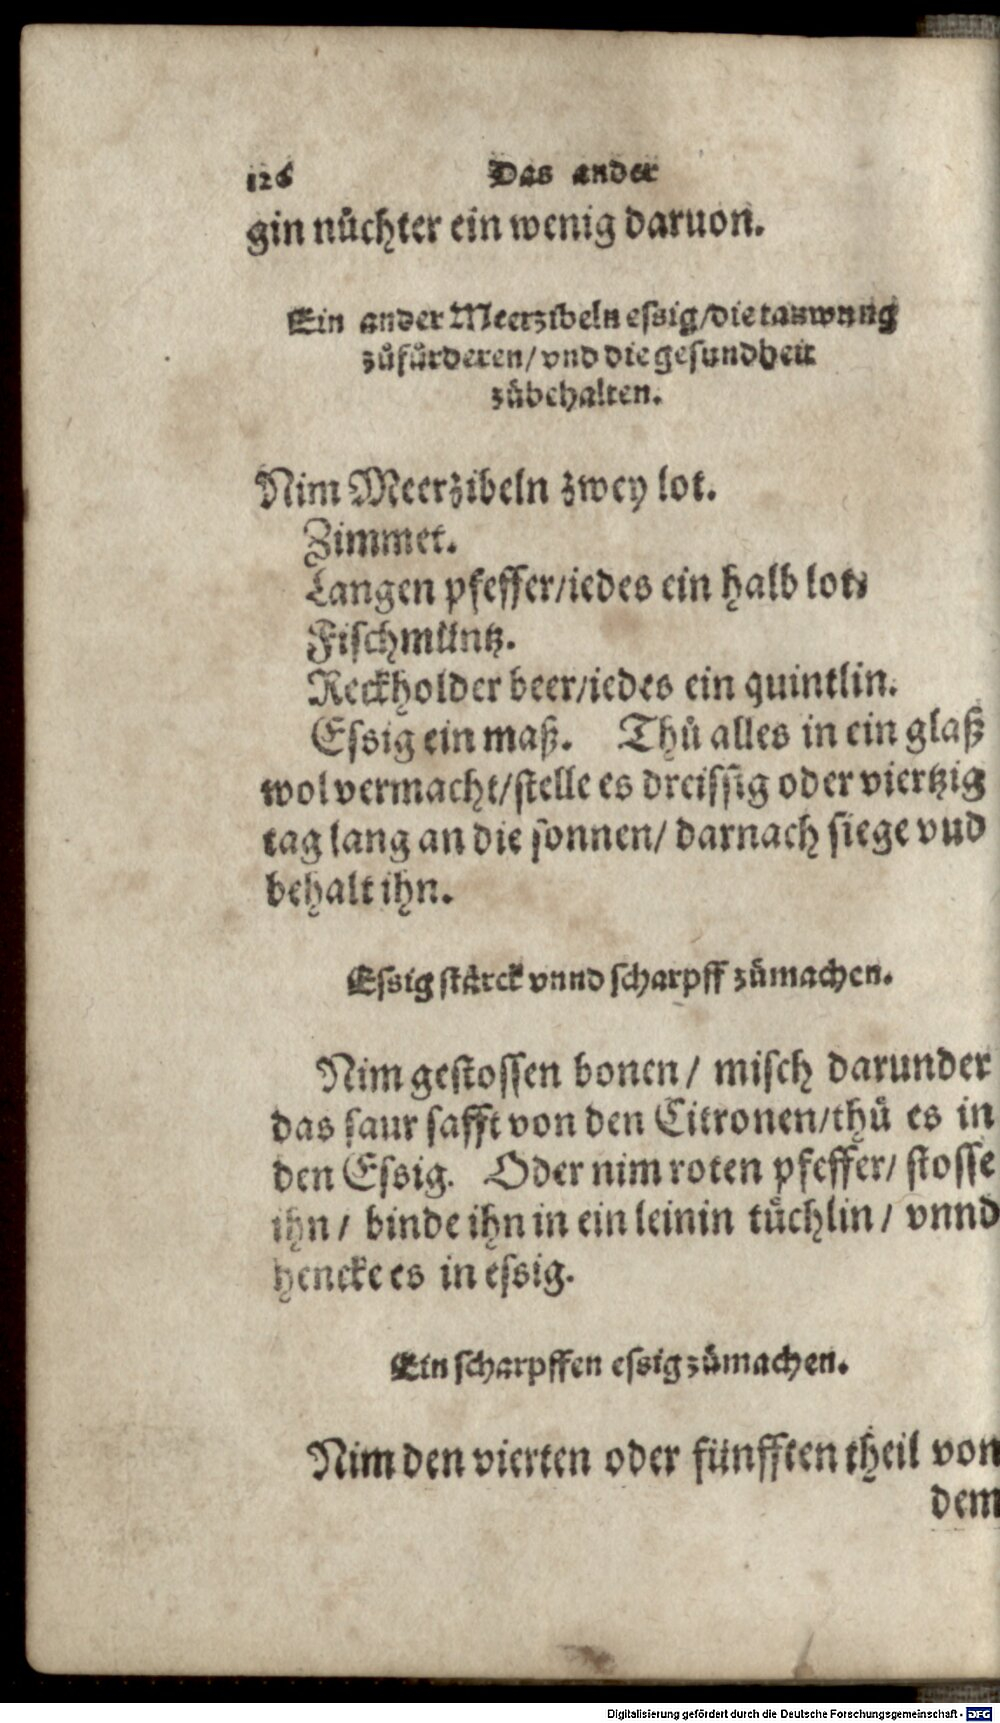 126 Das ander
gin nüchter ein wenig daruon.
Ein ander Meerzibeln essig/die tauwung
zůfürderen/vnd die gesundheit
zůbehalten.
Nim Meerzibeln zwey lot.
Zimmet.
Langen pfeffer/iedes ein halb lot.
Fischmüntz.
Reckholder beer/iedes ein quintlin.
Essig ein maß. Thů alles in ein glaß
wol vermacht/stelle es dreissig oder viertzig
tag lang an die sonnen/ darnach siege vnd
behalt ihn.
Essig stärck vnnd scharpff zůmachen.
Nim gestossen bonen/ misch darunder
das saur safft von den Citronen/thů es in
den Essig. Oder nim roten pfeffer/ stosse
ihn/ binde ihn in ein leinin tüchlin/ vnnd
hencke es in essig.
Ein scharpffen essig zůmachen.
Nim den vierten oder fünfften theil von
dem
Digitalisierung gefördert durch die Deutsche Forschungsgemeinschaft - DFG